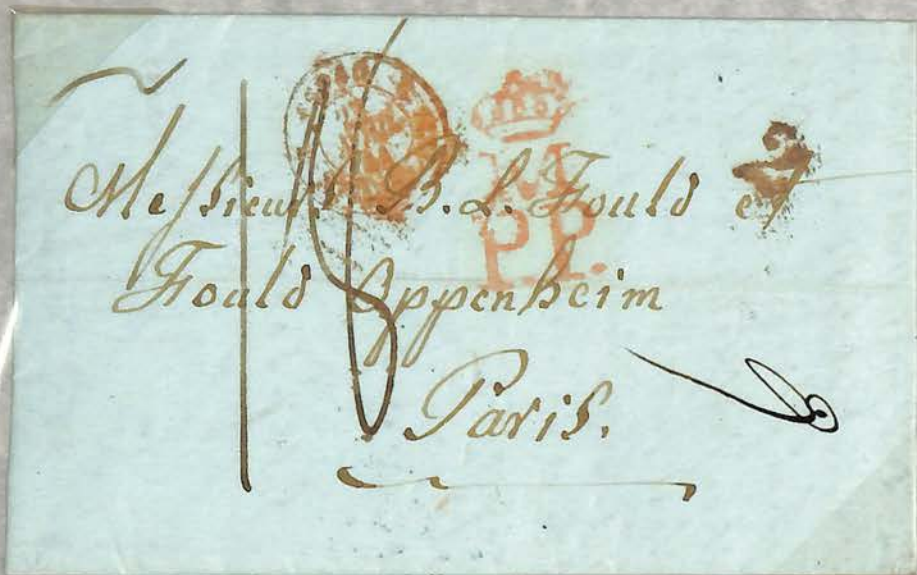 M
P.P.
Messieurs B. L. Fould et
Fould Oppenheim
Paris.